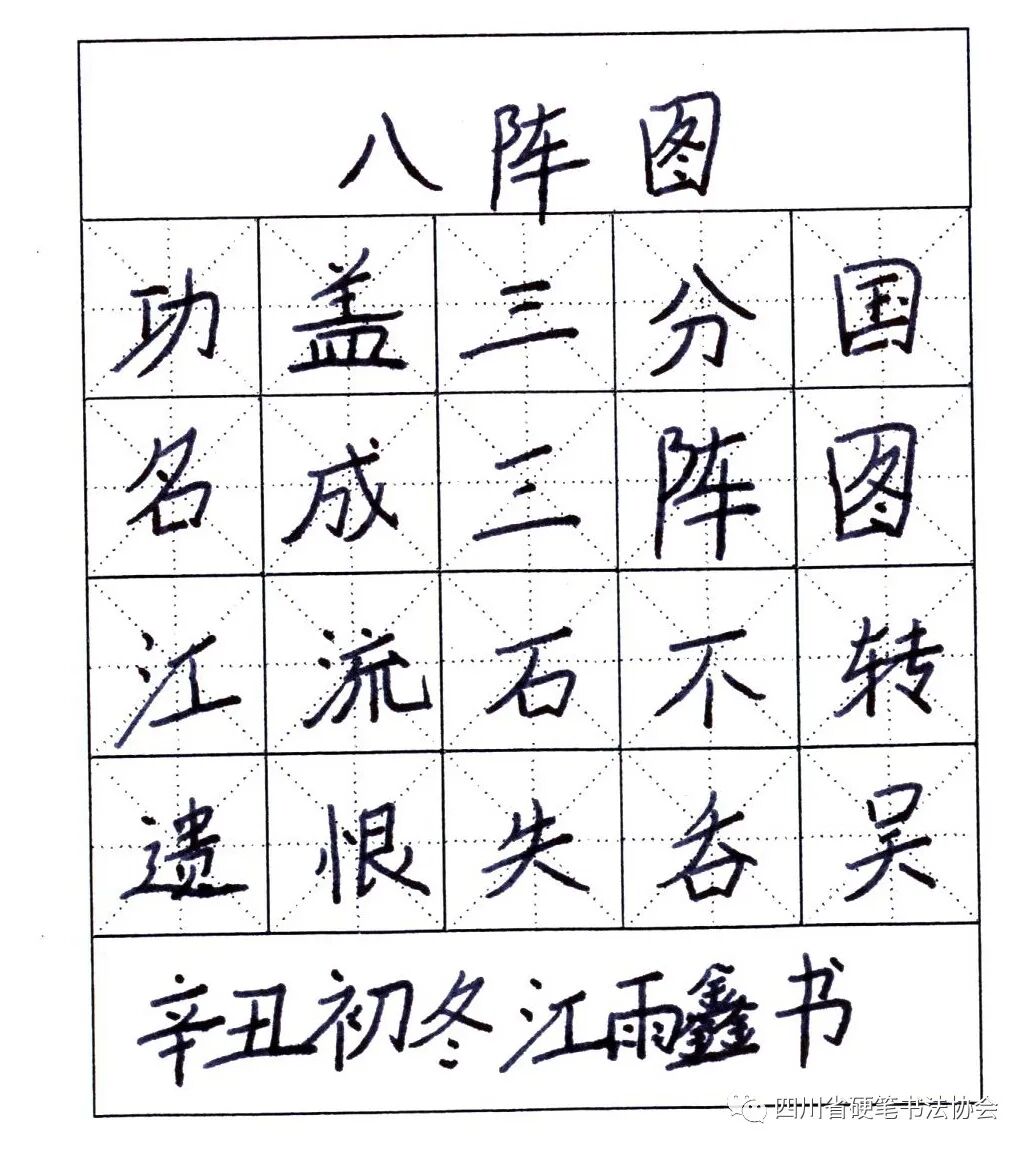 八阵图
功盖三分国
名成三阵图
江流石不转
遗恨失吞吴
辛丑初冬江雨鑫书
四川省硬笔书法协会